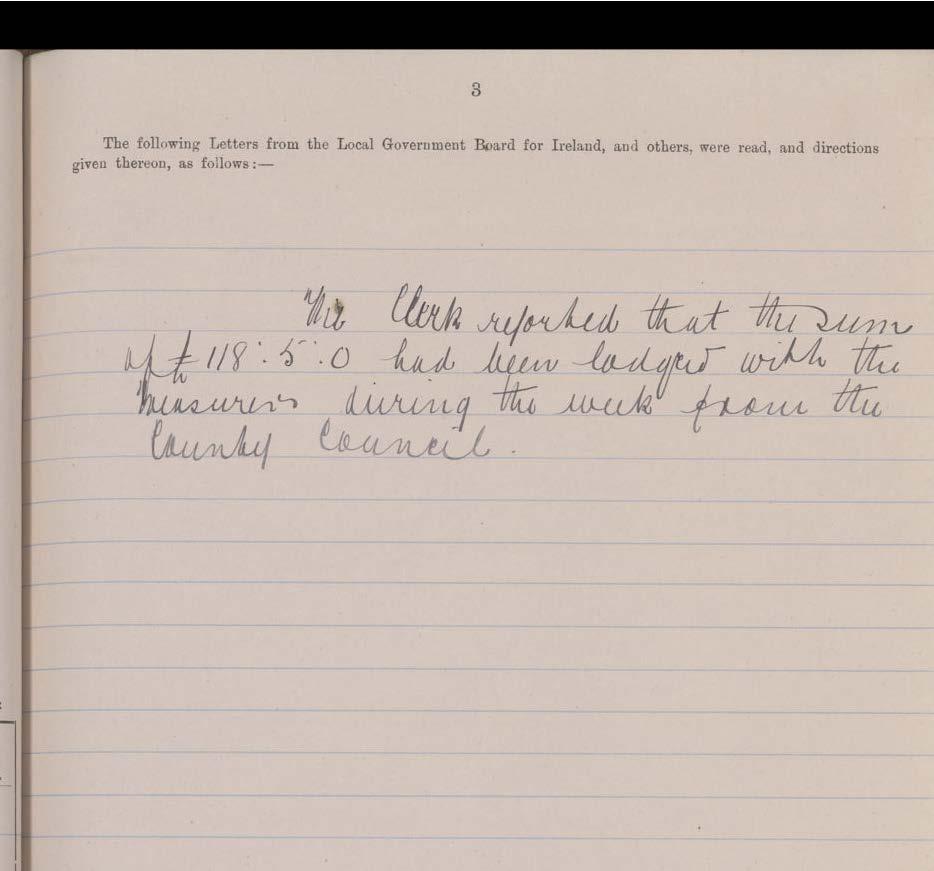 3
The following Letters from the Local Government Board for Ireland, and others, were read, and directions
given thereon, as follows:—
The Clerk reported that the sum
of £118:5:0 had been lodged with the
Treasurers during the week from the
County Council.